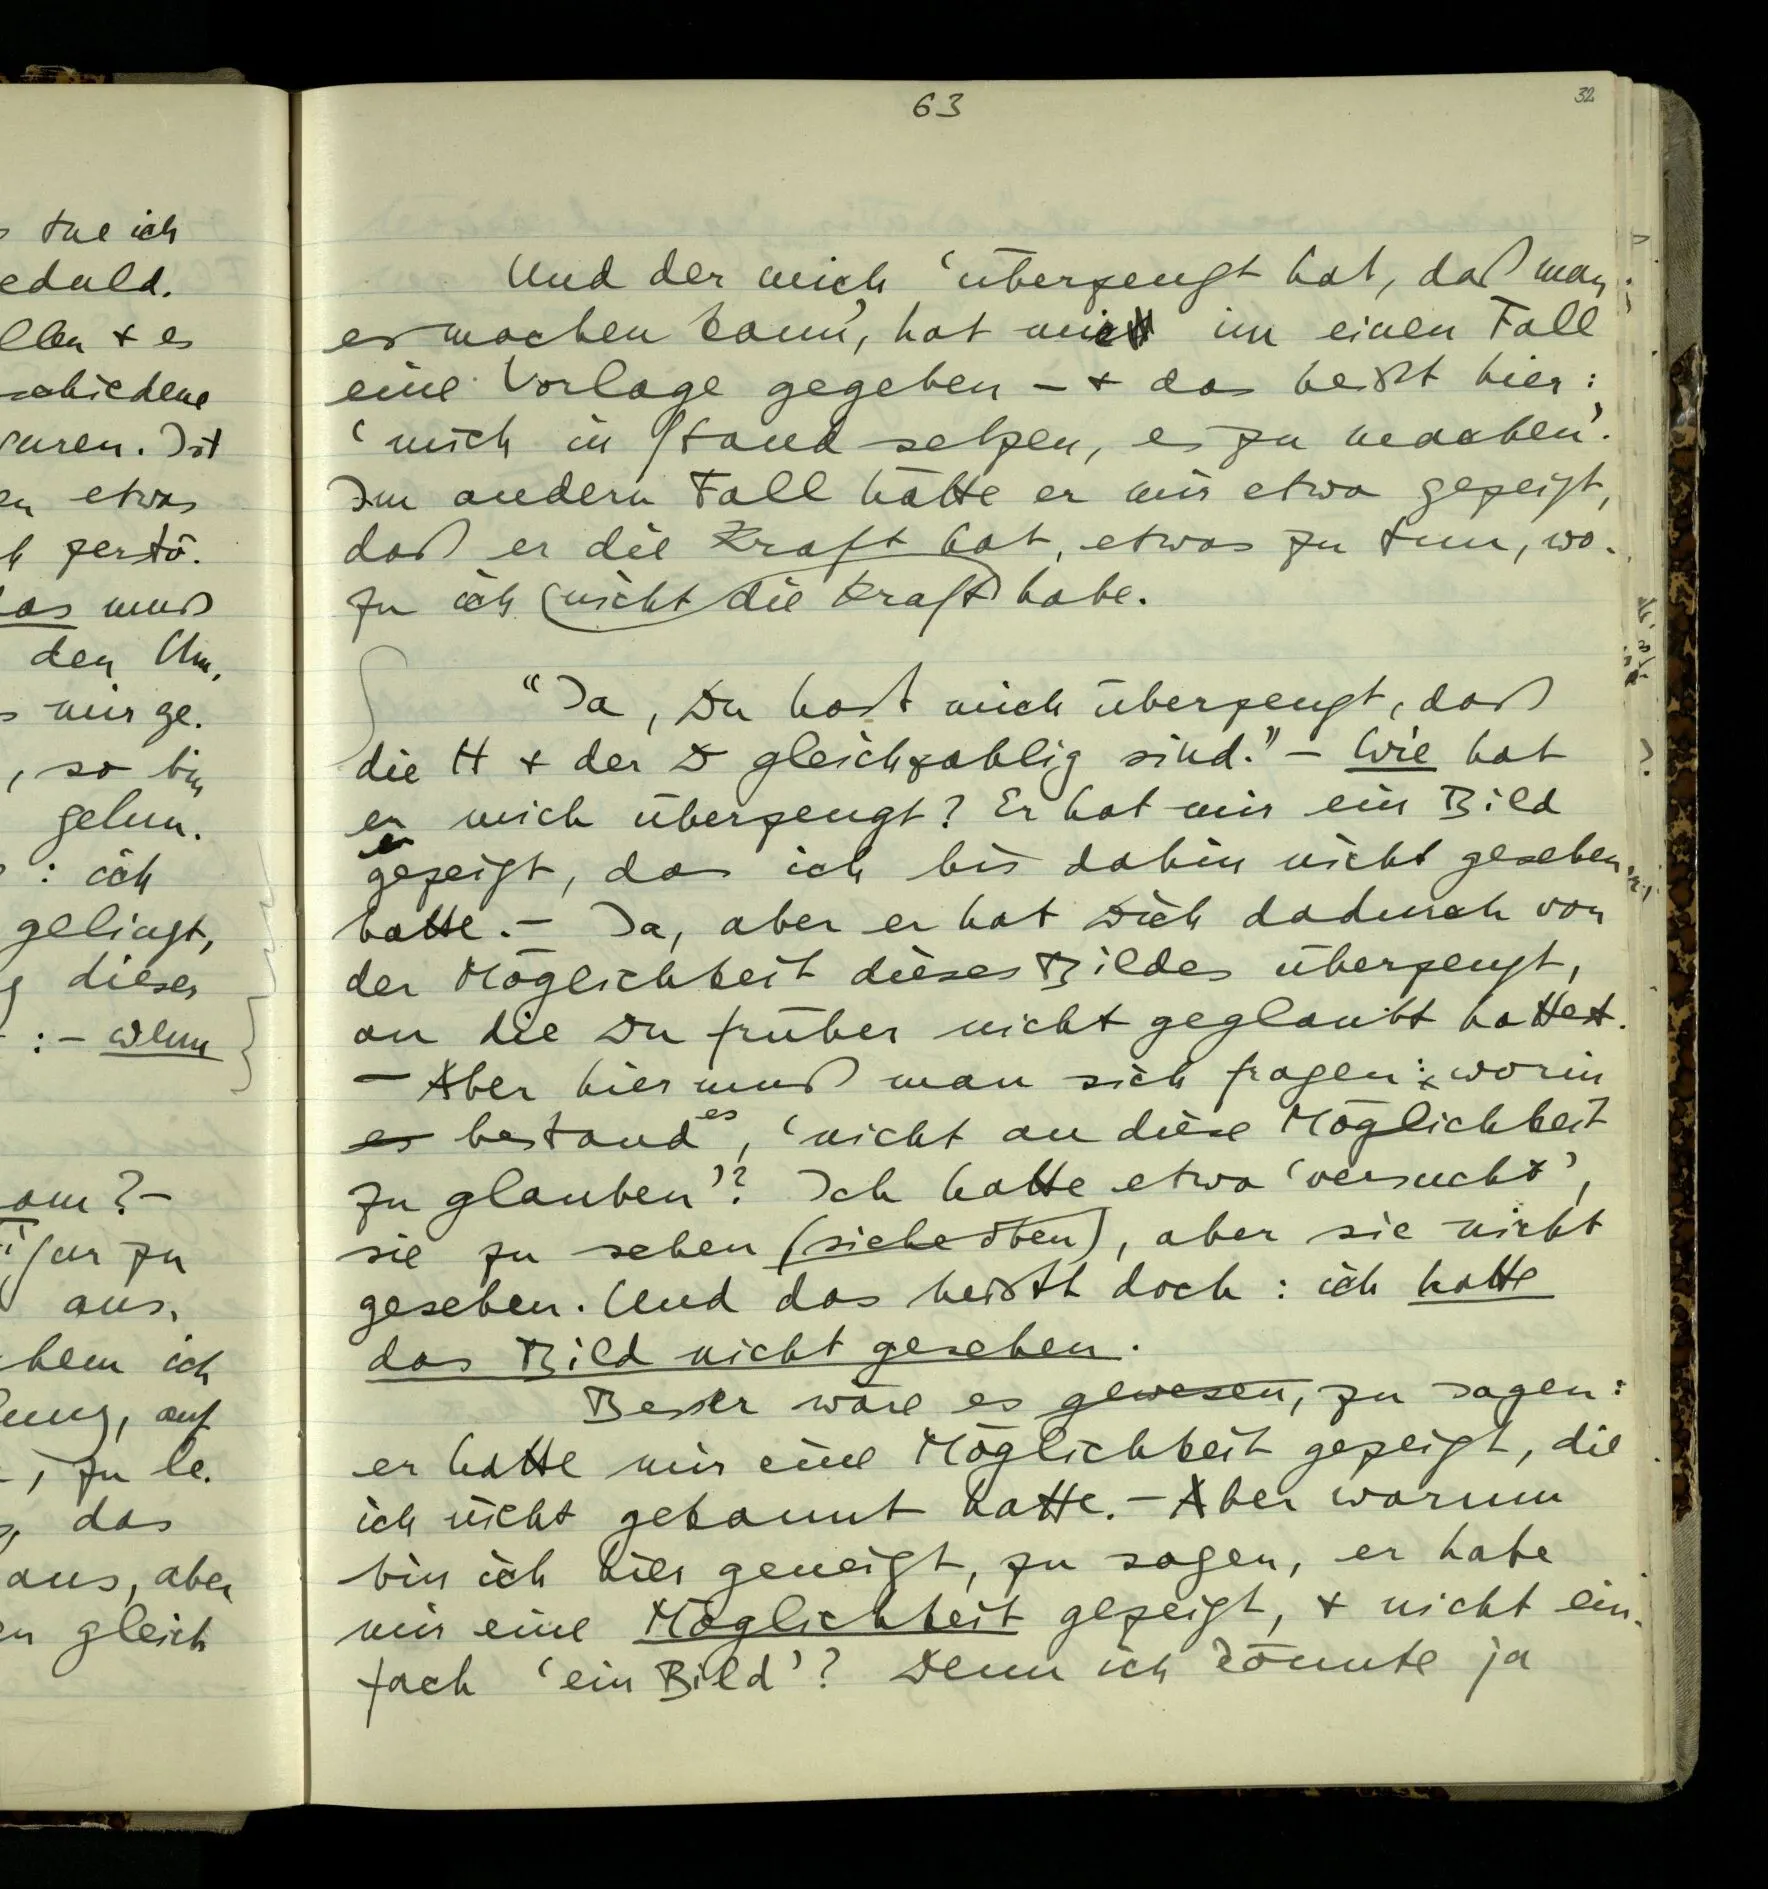 63
32
s tue ich
eduld.
llen + es
schiedene
uren. Ist
en etwas
h zerstö-
das muß
den Um,
s mir ge-
, so bin
gelun-
: ich
gelingt,
g dieser
:– wenn
om?–
ur zu
aus,
chem ich
lung, auf
, zu be-
, das
aus, aber
en gleich
Und der mich ‘überzeugt hat, daß man
es machen kann’, hat mir im einen Fall
eine Vorlage gegeben – + das heißt hier:
‘mich in Stand setzen, es zu machen’.
Im andern Fall hätte er mir etwa gezeigt,
daß er die Kraft hat, etwas zu tun, wo-
zu ich (nicht die Kraft) habe.
“Ja, Du hast mich überzeugt, daß
die H + der D gleichzahlig sind.” – Wie hat
er mich überzeugt? Er hat mir ein Bild
er
gezeigt, das ich bis dahin nicht gesehen
hatte. – Ja, aber er hat Dich dadurch von
der Möglichkeit dieses Bildes überzeugt,
an die Du früher nicht geglaubt hattest.
– Aber hier muß man sich fragen: worin
es bestand es, ‘nicht an diese Möglichkeit
zu glauben’? Ich hatte etwa ‘versucht’,
sie zu sehen (siehe oben), aber sie nicht
gesehen. Und das heißt doch: ich hatte
das Bild nicht gesehen.
Besser wäre es gewesen, zu sagen:
er hatte mir eine Möglichkeit gezeigt, die
ich nicht gekannt hatte. – Aber warum
bin ich hier geneigt, zu sagen, er habe
mir eine Möglichkeit gezeigt, + nicht ein-
fach ‘ein Bild’? Denn ich könnte ja